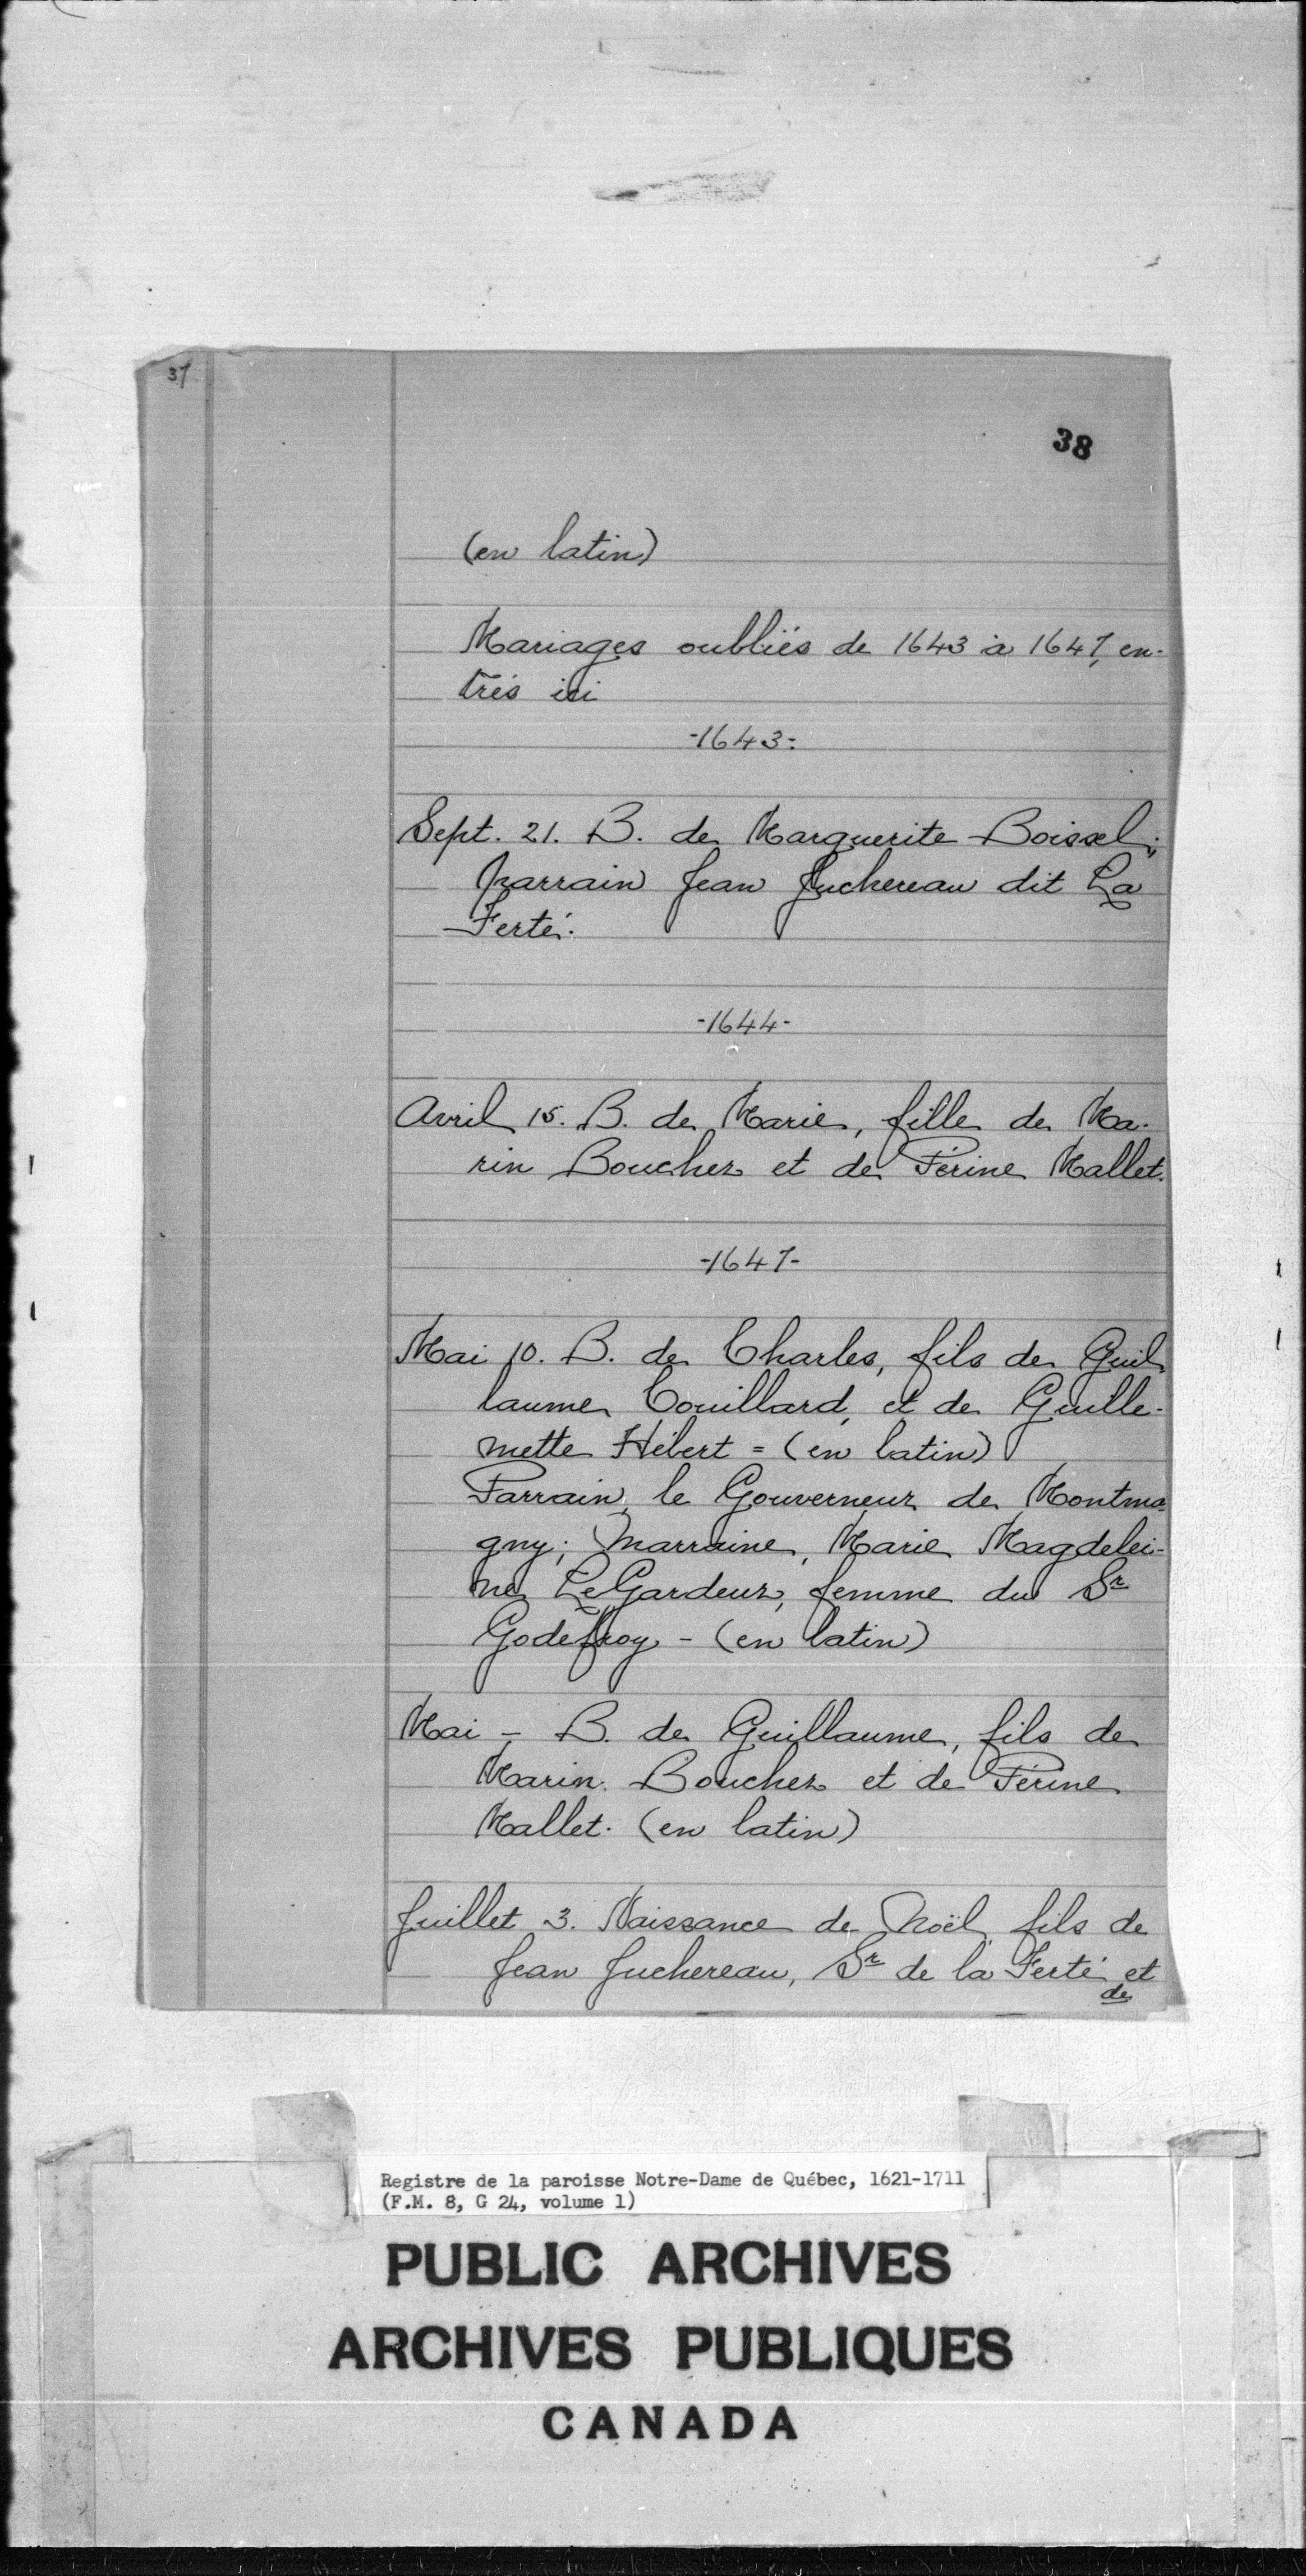 37
38
(en latin)
Mariages oubliés de 1643 à 1647, en-
trés ici
-1643-
Sept. 21. B. de Marguerite Boissel;
parrain Jean Juchereau dit La
Ferté.
-1644-
Avril 15. B. de Marie, fille de Ma-
rin Boucher et de Périne Mallet.
-1647-
Mai 10. B. de Charles, fils de Guil-
laume Couillard, et de Guille-
mette Hébert = (en latin)
Parrain, le Gouverneur de Montma-
gny; Marraine, Marie Magdelei-
ne LeGardeur, femme du Sr
Godefroy - (en latin)
Mai - B. de Guillaume, fils de
Marin Boucher et de Périne
Mallet. (en latin)
Juillet 3. Naissance de Noël, fils de
Jean Juchereau, Sr de la Ferté et
de
Registre de la paroisse Notre-Dame de Québec, 1621-1711
(F.M. 8, G 24, volume 1)
PUBLIC ARCHIVES
ARCHIVES PUBLIQUES
CANADA